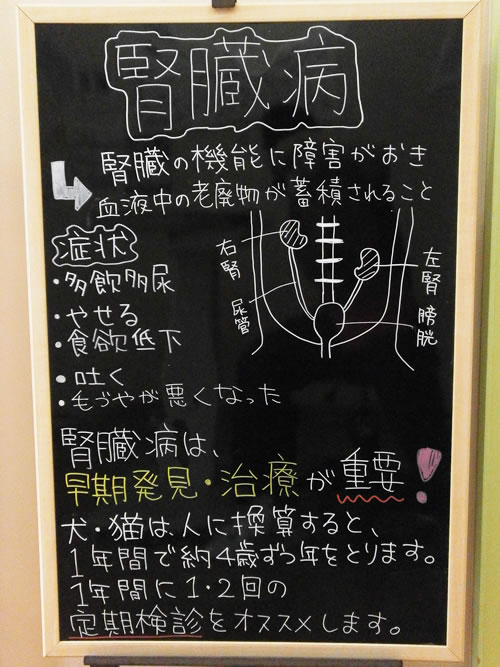 腎臓病
腎臓の機能に障害がおき
血液中の老廃物が蓄積されること
症状
・多飲多尿
・やせる
・食欲低下
・吐く
・毛づやが悪くなった
右腎
尿管
左腎
膀胱
腎臓病は、
早期発見・治療が重要!
犬・猫は人に換算すると、
1年間で約4歳ずつ年をとります。
1年間に1・2回の
定期検診をオススメします。